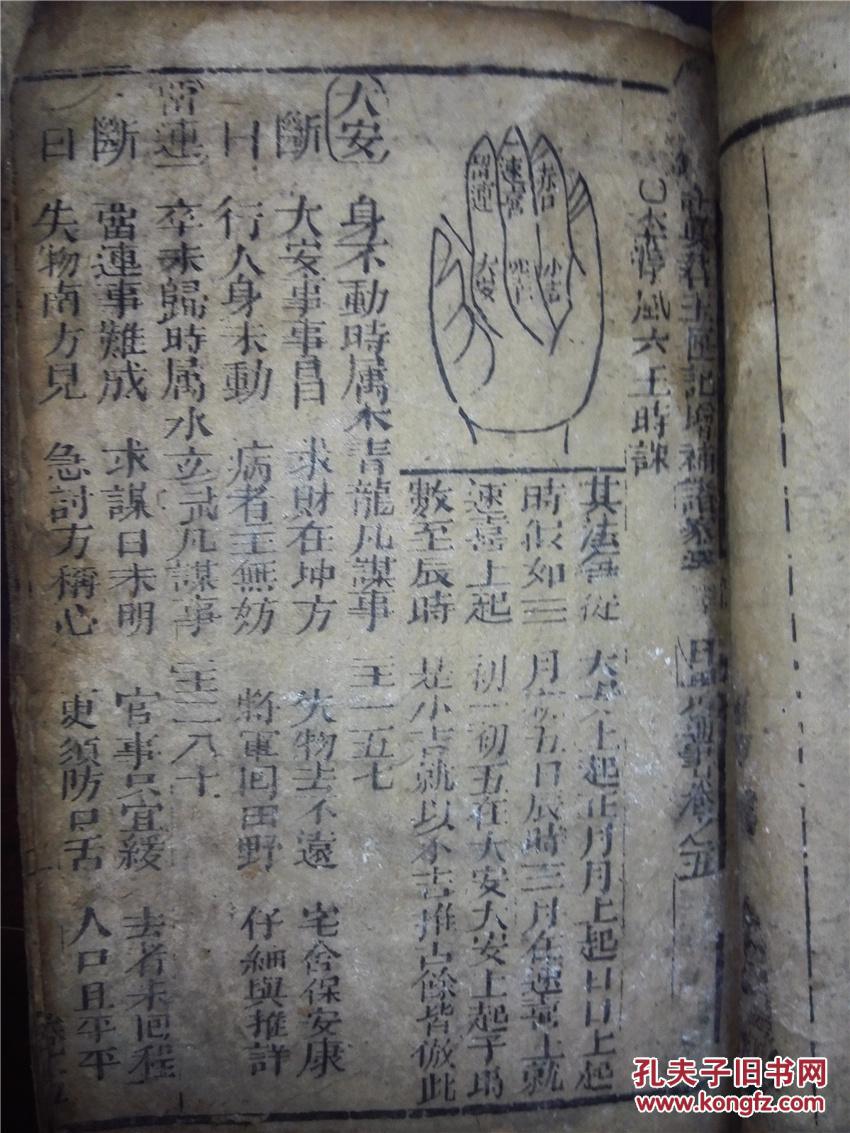 許真君玉匣記增補諸家 日用通書卷之五
李淳風六壬時課
留連
速喜
赤口
大安
空亡
小吉
其法每從大安上起正月月上起日日上起
時假如三月初五日辰時三月在速喜上就
速喜上起初一初五在大安大安上起子時
數至辰時是小吉就以小吉推占餘皆倣此
大安 身不動時属木青龍凡謀事 主一五七
斷 大安事事昌 求財在坤方 失物去不遠 宅舍保安康
曰 行人身未動 病者主無妨 將軍回田野 仔細與推詳
留連 卒未歸時属水玄武凡謀事 主二八十
斷 留連事難成 求謀日未明 官事只宜緩 去者未回程
曰 失物南方見 急討方稱心 更須防口舌 人口且平平
孔夫子旧书网
www.kongfz.com